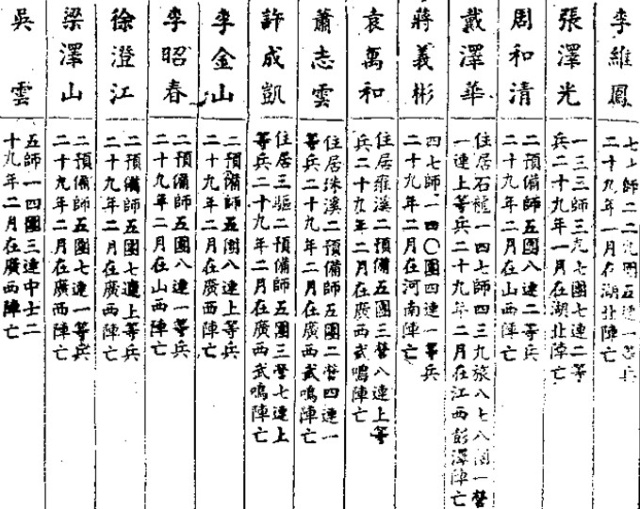 李維鳳
七七師二二九團五連一等兵
二十九年一月在湖北陣亡
張澤光
一三三師三九七團七連二等
兵二十九年一月在湖北陣亡
周和清
二預備師五團八連二等兵
二十九年二月在山西陣亡
戴澤華
住居石龍一四七師四三九旅八七八團一營
一連上等兵二十九年二月在江西彭澤陣亡
蔣義彬
四七師一四〇團四連一等兵
二十九年二月在河南陣亡
袁萬和
住居雍溪二預備師五團三營八連上等
兵二十九年二月在廣西武鳴陣亡
蕭志雲
住居珠溪二預備師五團二營四連一
等兵二十九年二月在廣西武鳴陣亡
許成凱
住居三驅二預備師五團三營七連上
等兵二十九年二月在廣西武鳴陣亡
李金山
二預備師五團八連上等兵
二十九年二月在廣西陣亡
李昭春
二預備師五團八連一等兵
二十九年二月在山西陣亡
徐澄江
二預備師五團七連上等兵
二十九年二月在廣西陣亡
梁澤山
二預備師五團七連一等兵
二十九年二月在廣西陣亡
吳雲
五師一四團三連中士二
十九年二月在廣西陣亡